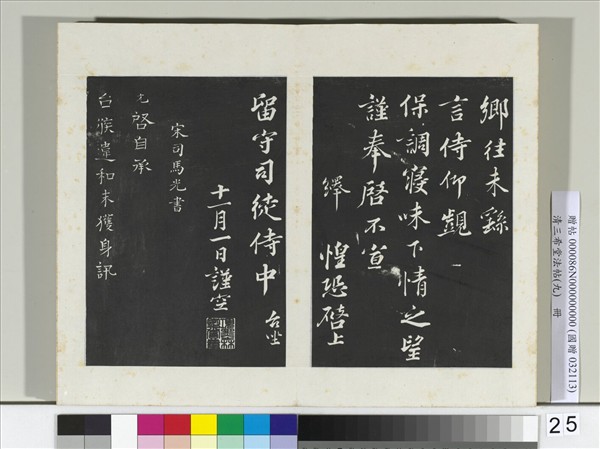 鄉往未繇
言侍仰覬一
保調寢味下情之望
謹奉啓不宣
繹 惶恐啓上
留守司徒侍中 台坐
十一月一日謹空
宋司馬光書
光啓自承
台候違和未獲身訊
贈帖 000086N000000000 (國贈 032113)
清三希堂法帖(九) 冊
25